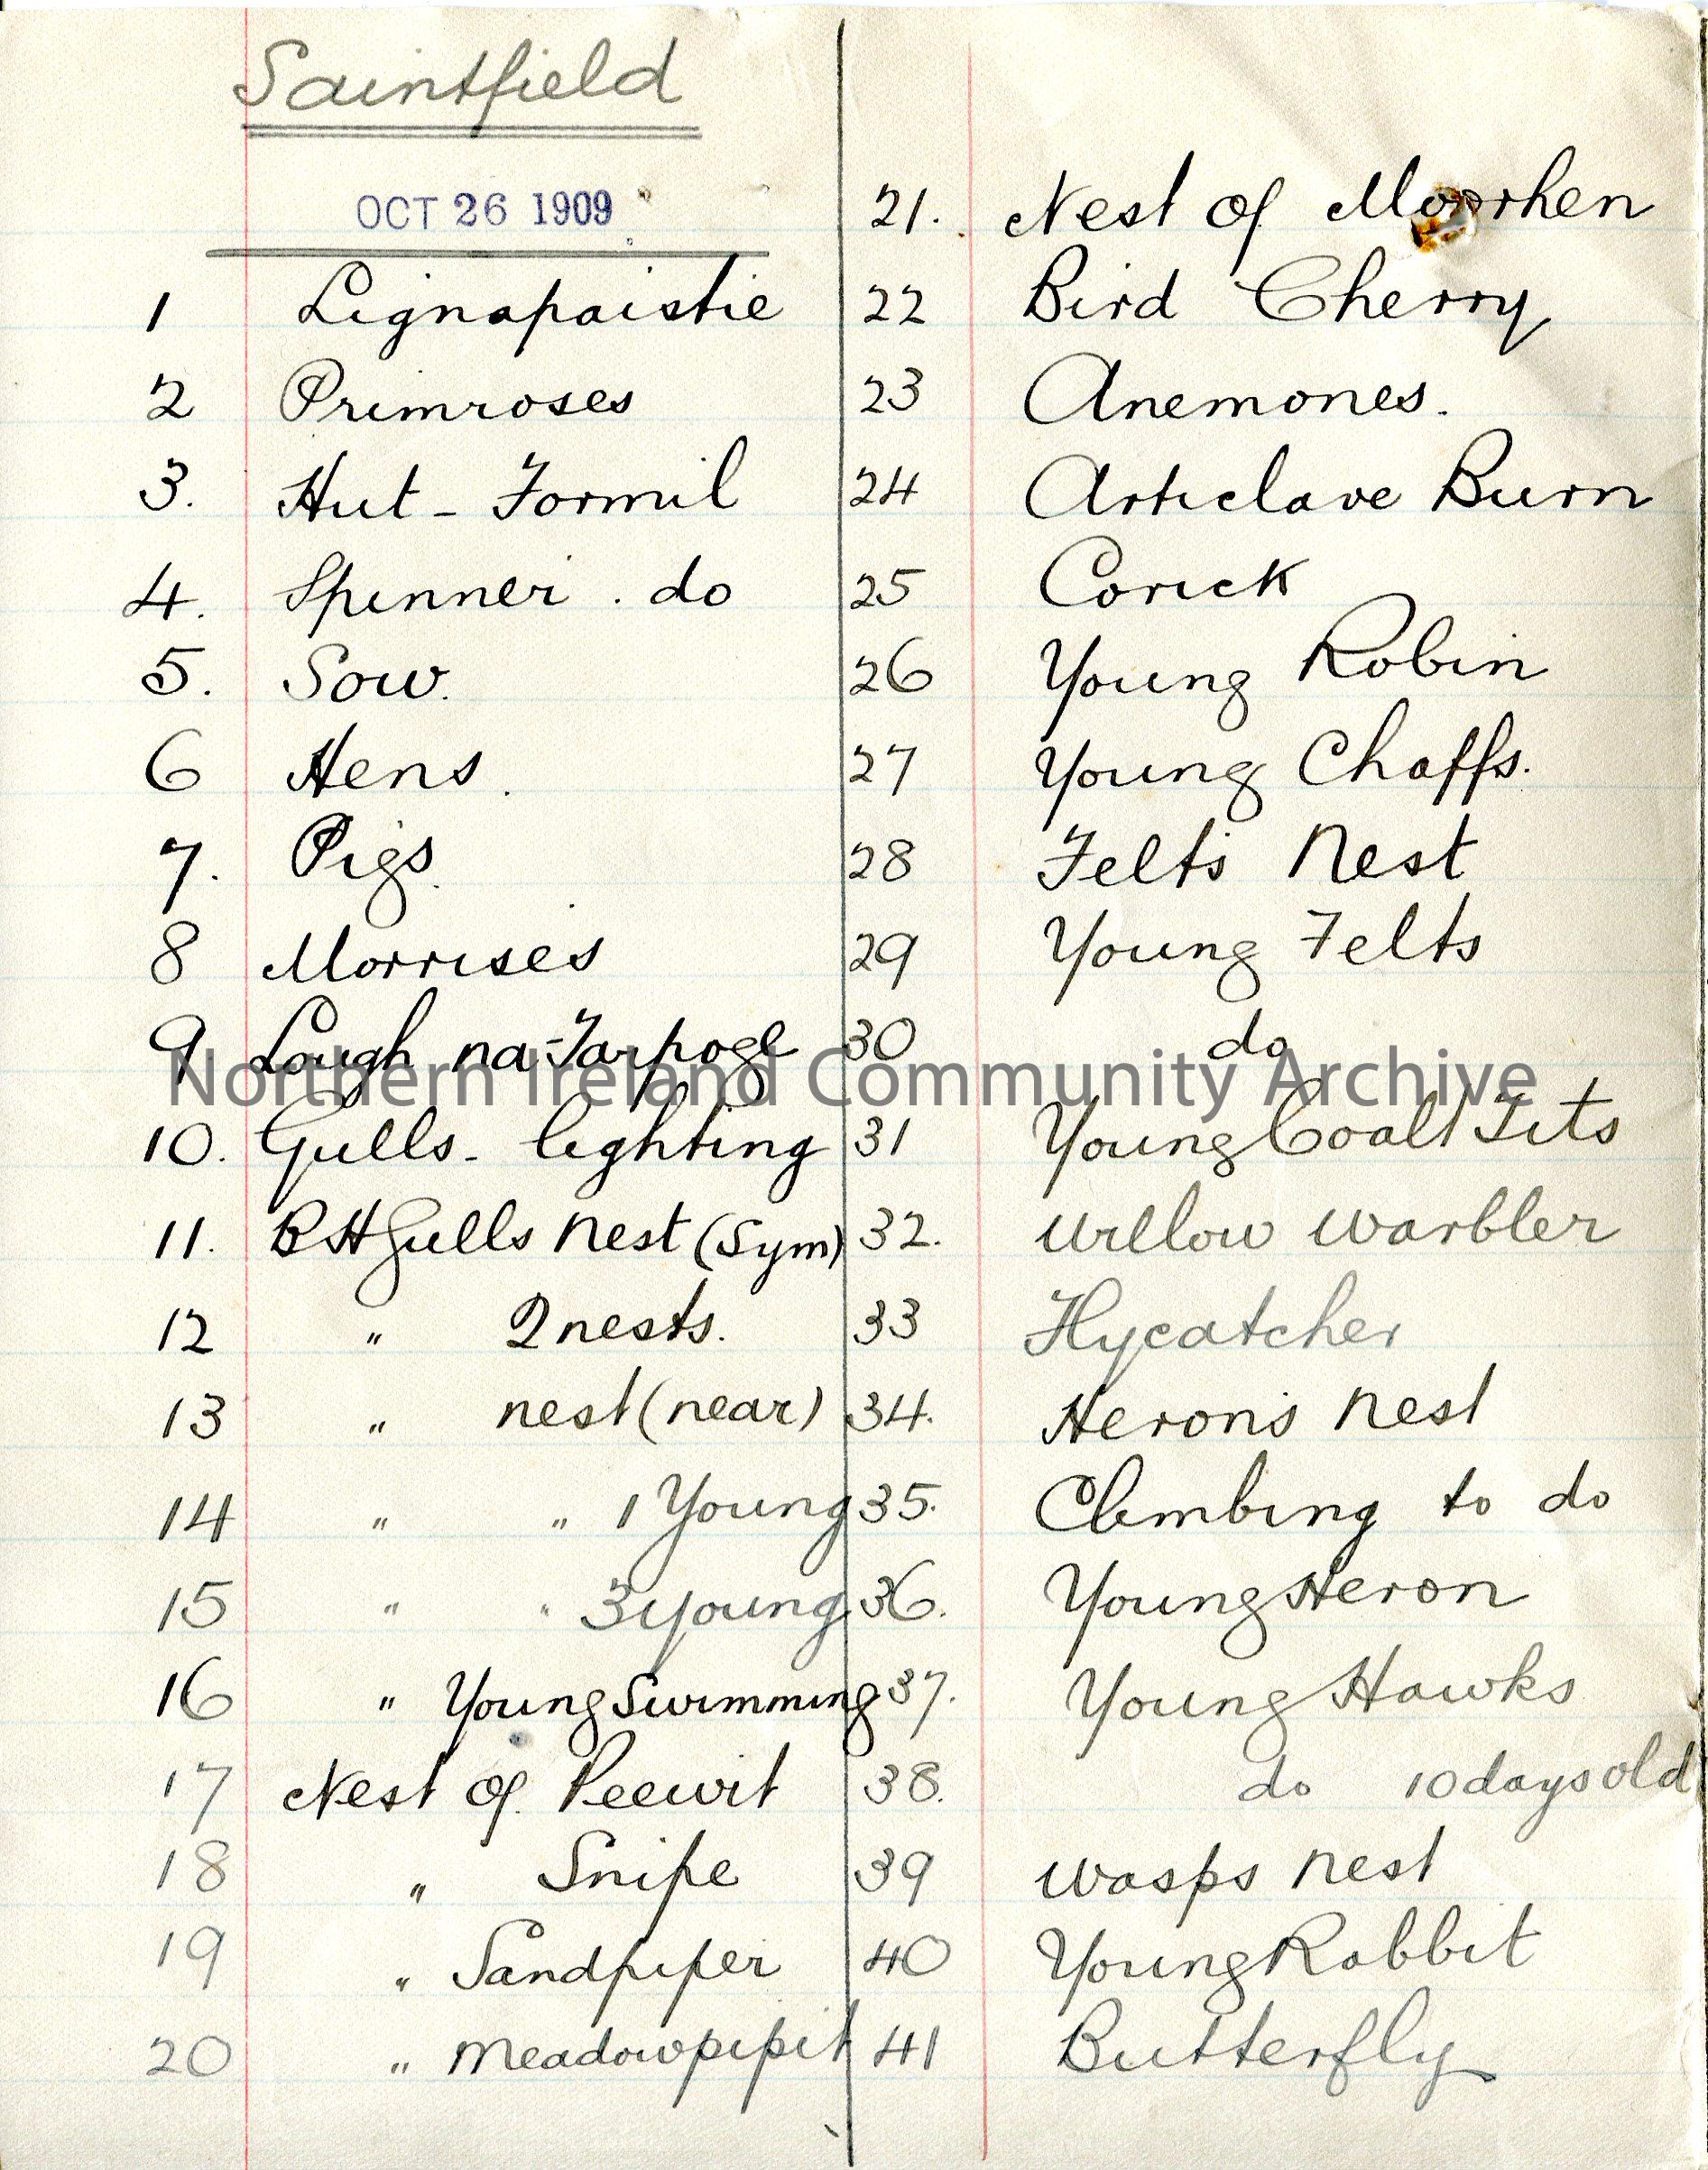 Saintfield
OCT 26 1909
1 Lignapaistie
2 Primroses
3. Hut - Formil
4. Spinner . do
5. Sow.
6 Hens.
7. Pigs.
8 Morrises
9 Lough na-Tarpoge
10. Gulls - lighting
11. B H Gulls Nest (Sym)
12 " 2 nests.
13 " nest (near)
14 " " 1 Young
15 " " 3 young
16 " Young Swimming
17 Nest of Peewit
18 " Snipe
19 " Sandpiper
20 " Meadowpipit
21. Nest of Moorhen
22 Bird Cherry
23 Anemones.
24 Articlave Burn
25 Corick
26 Young Robin
27 Young Chaffs.
28 Felt's Nest
29 Young Felts
30 do
31 Young Coalt Tits
32. Willow Warbler
33 Flycatcher
34. Heron's Nest
35. Climbing to do
36. Young Heron
37. Young Hawks
38. do 10 days old
39 Wasps Nest
40 Young Rabbit
41 Butterfly
Northern Ireland Community Archive